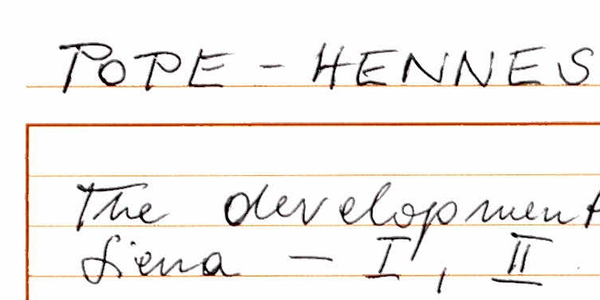 POPE - HENNES
The development
Siena - I, II